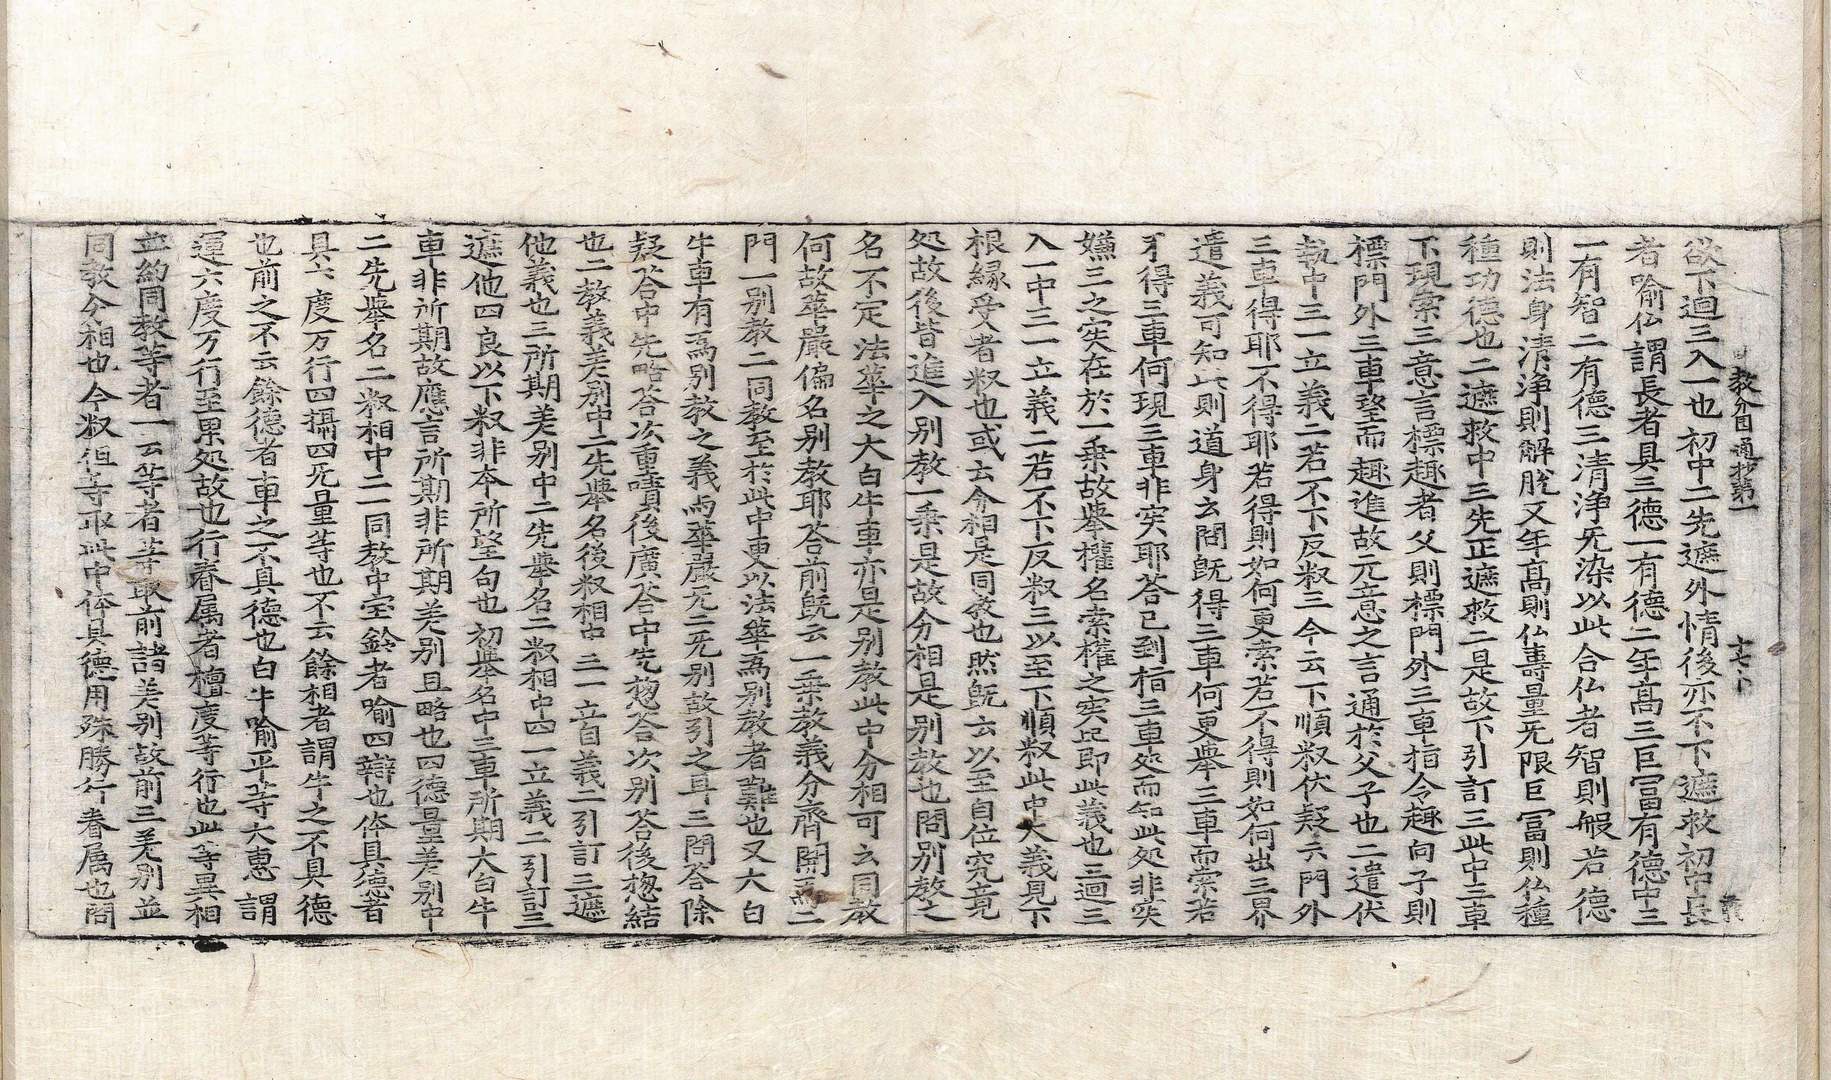 教分圓通抄第一
欲下迴三入一也初中二先遮外情後亦不下遮救初中長
者喻仏謂長者具三德一有德二年高三巨冨有德中三
一有智二有德三清淨无染以此合仏者智則般若德
則法身清淨則解脫又年高則仏壽量无限巨冨則仏種
種功德也二遮救中三先正遮救二是故下引訂三此中三車
下現索三意言標趣者父則標門外三車指令趣向子則
標門外三車望而趣進故兀意之言通於父子也二遣伏
執中三一立義二若不下反粎三今云下順粎伏疑云門外
三車得耶不得耶若得則如何更索若不得則如何出三界
遣義可知此則道身云問旣得三車何更擧三車而索若
不得三車何現三車非实耶荅已到指三車处而知此处非实
嫌三之实在於一乗故擧權名索權之实㞐即此義也三迴三
入一中三一立義二若不下反粎三以至下順粎此中大義見下
根縁受者粎也或云分相是同教也然旣云以至自位究竟
处故後皆進入別教一乗是故分相是別教也問別教之
名不定法華之大白牛車亦是別教此中分相可云同教
何故華嚴偏名別教耶荅前旣云一乗教義分齊開爲二
門一別教二同教至於此中更以法華爲別教者難也又大白
牛車有爲別教之義而華嚴无二无別故引之耳三問荅除
疑荅中先略荅次重嘖後廣荅中先揔荅次別荅後揔結
也二教義差別中二先擧名後粎相中三一音義二引訂三遮
他義也三所期差別中二先擧名二粎相中四一立義二引訂三
遮他四良以下粎非本所望句也初擧名中三車所期大白牛
車非所期故應言所期非所期差別且略也四德量差別中
二先擧名二粎相中二一同教中宝鈴者喻四辯也体具德者
具六度万行四攝四无量等也不云餘相者謂牛之不具德
也前之不云餘德者車之不具德也白牛喻平等大恵謂
運六度万行至果处故也行眷属者檀度等行也此等異相
並約同教等者一云等者等取前諸差別故前三差別並
同教分相也今粎但等取此中体具德用殊勝行眷属也問